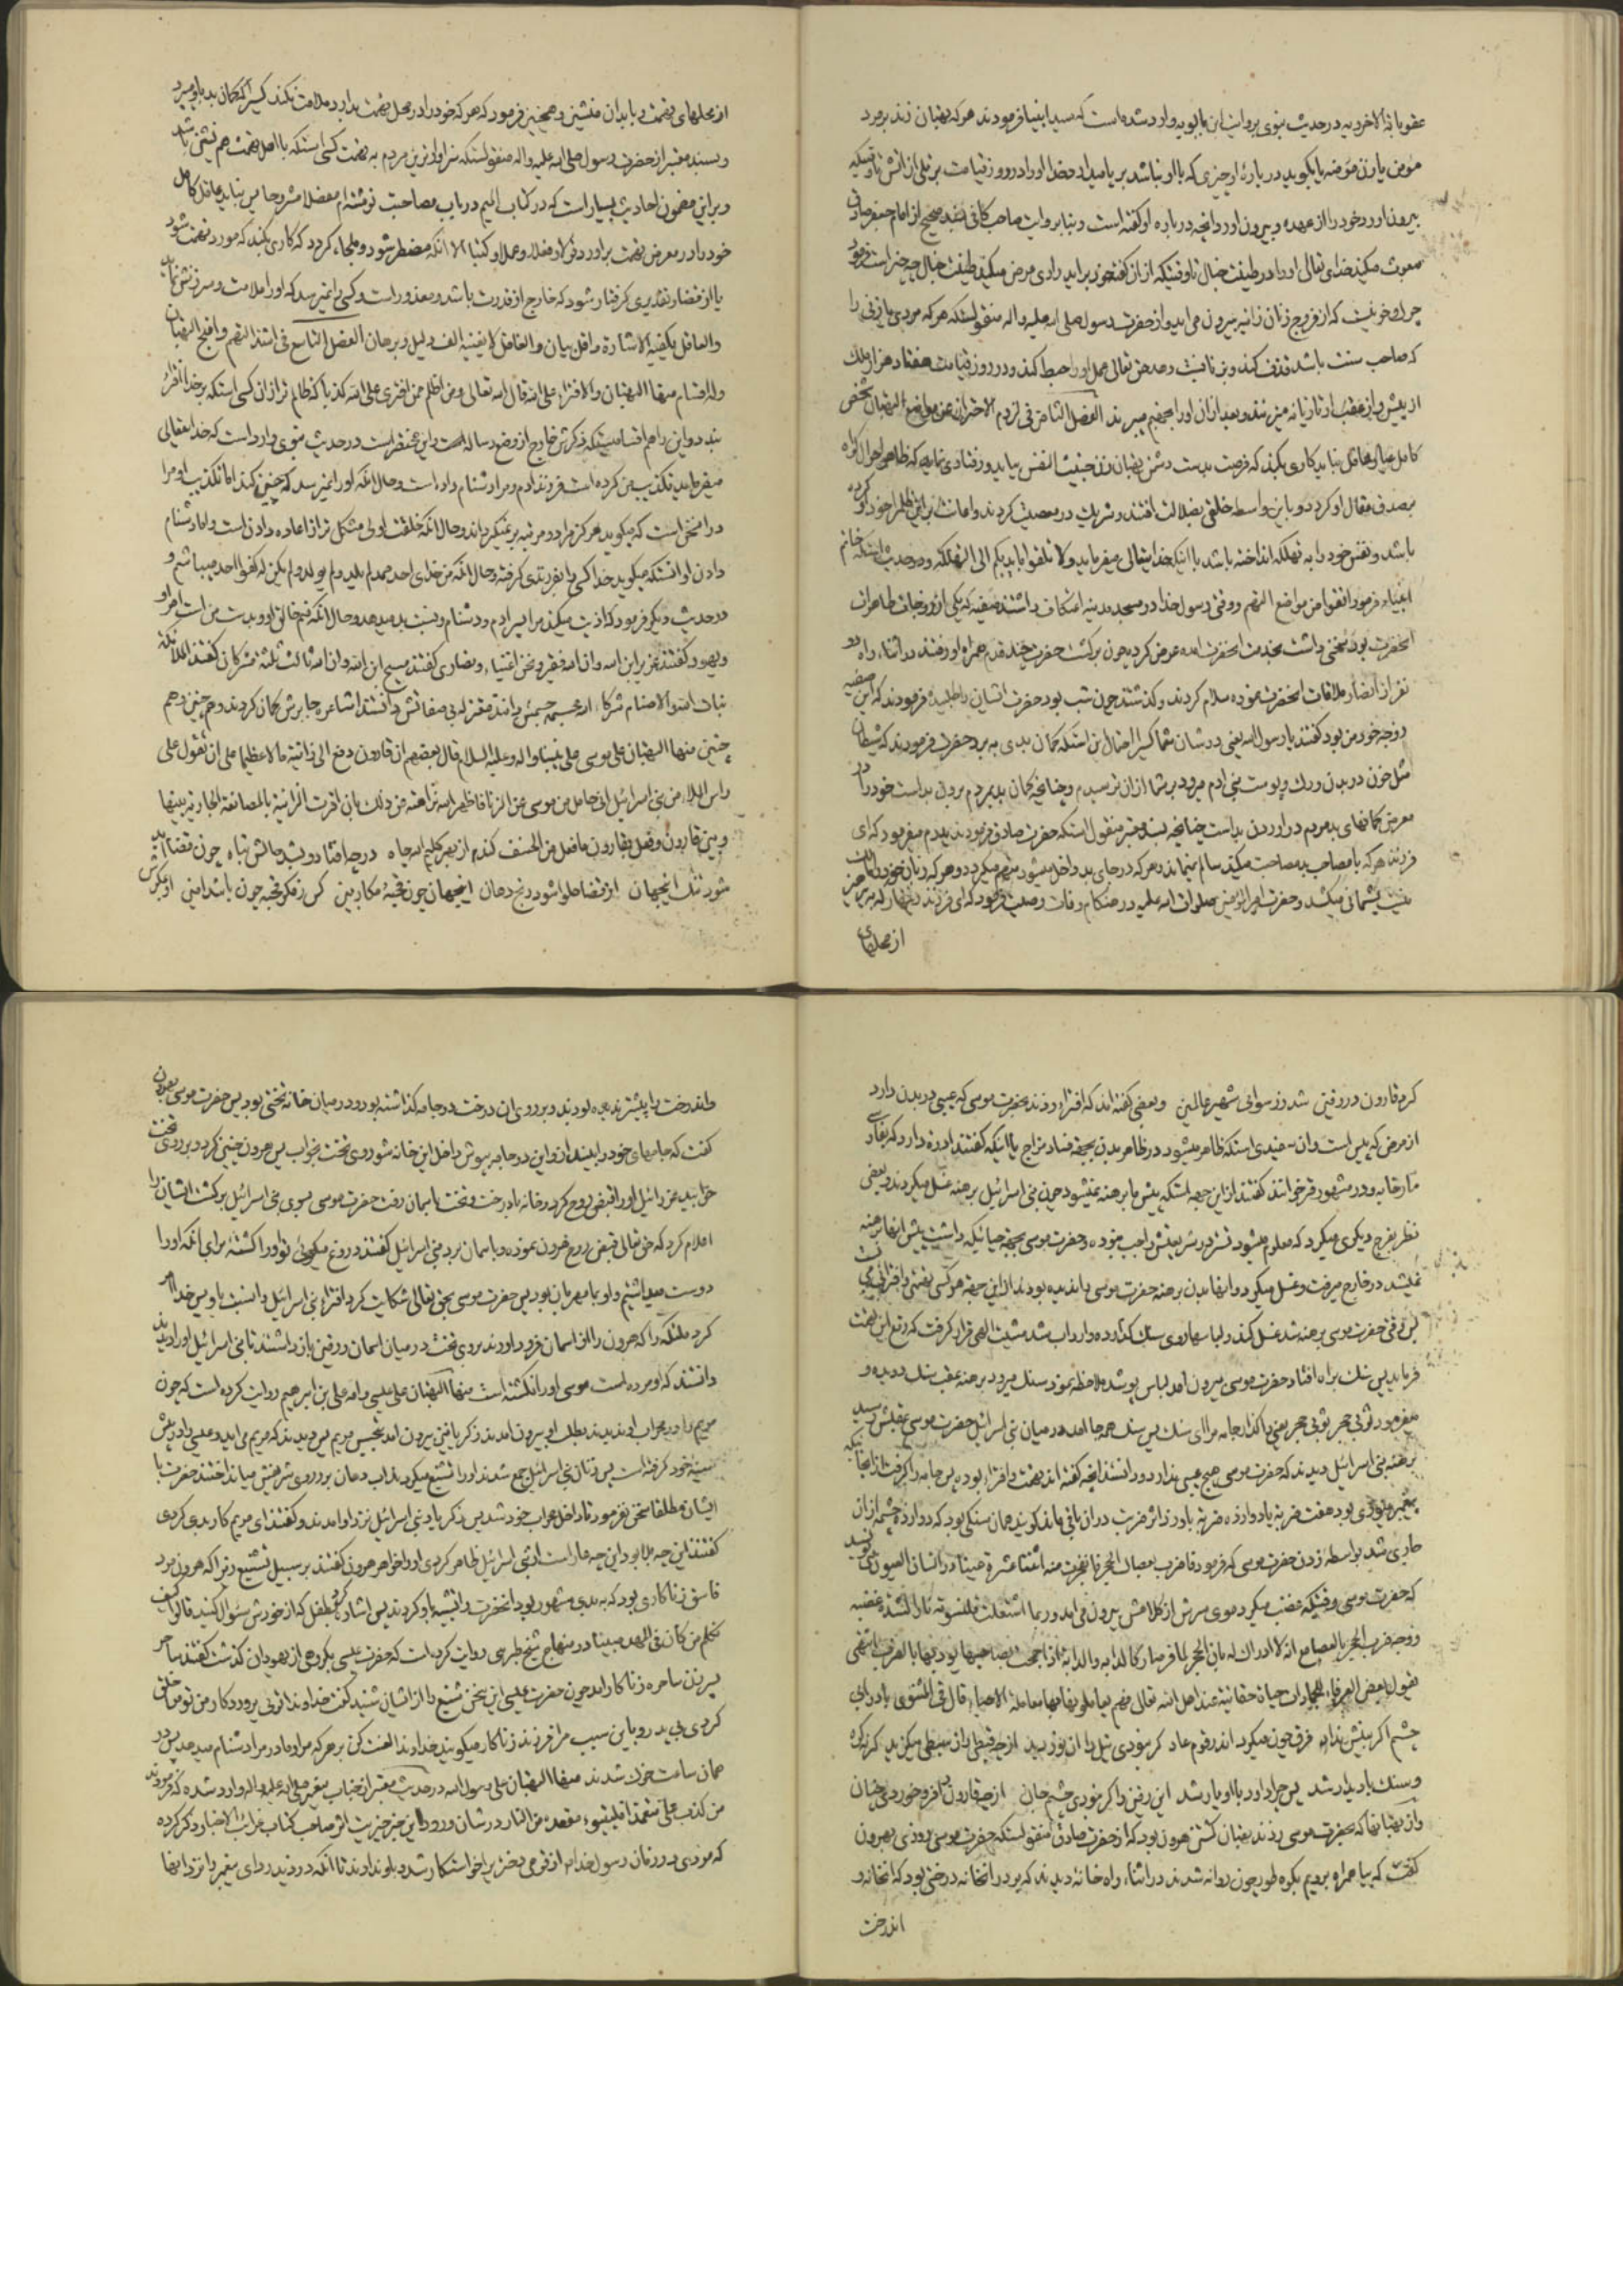 عقوباته الاخرویه در حدیث نبوی بروایت ابن بابویه وارد شده است که سید انبیا فرمودند هرکه بهتان زند بر مرد
مؤمن یا زن مؤمنه یا بگوید درباره او چیزی که با او نباشد بر پا میدارد خدا او را در روز قیامت بر تلی از اتش تا وقتیکه
بیرون اورد خود را از عهده و بیرون اورد انچه درباره او گفته است و بنا بروایت صاحب کافی بسند صحیح از امام جعفر صادق
مبعوث میکند خدای تعالی او را در طینت خبال تا وقتیکه از ان گفته خود براید راوی عرض میکند طینت خبال چه چیز است فرمود
چرک و خونیست که از فروج زنان زانیه بیرون می اید و از حضرت رسول صلی الله علیه واله منقولستکه هرکه مردی یا زنی را
که صاحب سنت باشد قذف کند و بزنا نسبت دهد حق تعالی عمل او را حبط کند و در روز قیامت هفتاد هزار ملک
از پیش و از عقب او تازیانه میزنند و بعد ازان او را بجهنم میبرند الفصل الثامن فی لزوم الاحتراز عن مواضع البهتان شخص
کامل عیار عاقل نباید کاری بکند که فرصت بدست دشمن بهتان زن خبیث النفس بیاید و رفتاری نماید که ظاهر احوال گواه
مصدق مقال او گردد و باین واسطه خلقی بضلالت افتند و شریک در معصیت گردند و اعانت براین ظلم را خود او کرده
باشد و نفس خود را به تهلکه انداخته باشد با اینکه خدایتعالی میفرماید ولا تلقوا بایدیکم الی التهلکه و در حدیث استکه خاتم
انبیاء فرمود اتقوا من مواضع التهم و وقتی رسول خدا در مسجد مدینه اعتکاف داشتند صفیه که یکی از زوجات طاهرات
انحضرت بود سخنی داشت بخدمت انحضرت امده عرض کرده چون برگشت حضرت چند قدم همراه او رفتند در اثناء راه دو
نفر از انصار ملاقات انحضرت نموده سلام کردند و گذشتند چون شب بود حضرت ایشان را طلبیده فرمودند که این صفیه
زوجه خود من بود گفتند یا رسول الله یعنی در شان شما کسیرا احتمال این استکه گمان بدی به برد حضرت فرمودند که شیطان
مثل خون در بدن و رگ و پوست بنی ادم میرود بر شما ازان ترسیدم و چنانچه گمان بد بمردم بردن بد است خود را در
معرض گمانهای بد مردم در اوردن بد است چنانچه بسند معتبر منقول استکه حضرت صادق فرمودند پدرم میفرمود که ای
فرزند هرکه با مصاحب بد مصاحبت میکند سالم نمیماند و هرکه در جای بد داخل میشود متهم میگردد و هرکه زبان خود را مالک
نیست پشیمانی میکشد و حضرت امیرالمؤمنین صلوات الله علیه در هنگام وفات وصیت فرمود که ای فرزند زنهار که بپرهیز
از محلهای
از محلهای تهمت و با بدان منشین و همچنین فرمود که هرکه خود را در محل تهمت بدارد ملامت نکند کسیرا که گمان بد باو میبرد
و بسند معتبر از حضرت رسول صلی الله علیه واله منقولستکه سزاوارترین مردم به تهمت کسی استکه با اهل تهمت هم نشین باشد
و براین مضمون احادیث بسیار است که در کتاب در باب مصاحبت نوشته ام مفصلا مشروحا پس نباید عاقل کامل
خود را در معرض تهمت براورد قولا و فعلا و عملا و کتبا الا انکه مضطر شود و ملجاء گردد که کاری بکند که مورد تهمت شود
یا از قضا و تقدیری گرفتار شود که خارج از قدرت باشد و معذور است و کسی را نمیرسد که او را ملامت و سرزنش نماید
والعاقل یکفیه الاشارة و اقل بیان والغافل لا یغنیه الف دلیل و برهان الفصل التاسع فی اشد التهم و اقبح البهتان
وله اقسام منها البهتان والافتراء علی الله قال الله تعالی و من اظلم ممن افتری علی الله کذبا که ظالم تر از ان کسی استکه بر خدا افترا
بندد و این را هم اقسامیستکه ذکرش خارج از وضع رساله است و این مختصر است در حدیث نبوی وارد است که خدایتعالی
میفرماید تکذیب من کرده است فرزند ادم و مرا دشنام داده است و حال انکه او را نمیرسد که چنین کند اما تکذیب او مرا
در انجائی است که میگوید هرگز مرا دو مرتبه بر نمیگرداند و حال انکه خلقت اولی مشکل تر از اعاده دادن است و اما دشنام
دادن او انستکه میگوید خدا کسی را بفرزندی گرفته و حال انکه من خدای احد صمد لم یلد و لم یولد و لم یکن له کفوا احد میباشم و
در حدیث دیگر فرمود که اذیت میکند مرا پسر ادم و دشنام و نسبت بد میدهد و حال انکه منم خالق او و بدست من است امر او
و یهود گفتند عزیر ابن الله و ان الله فقیر و نحن اغنیاء و نصاری گفتند مسیح ابن الله و ان الله ثالث ثلثة مشرکان گفتند الملائکة
بنات الله والاصنام شرکاء له مجسمه جسمش دانند معتزله بی صفاتش دانستند اشاعره جابرش گمان کردند وهم چنین وهم
چنین منها البهتان علی موسی علی نبینا واله وعلیه السلام قال بعضهم ان قارون دفع الی زانیة مالا عظیما علی ان تقول علی
راس الملاء من بنی اسرائیل انی حامل من موسی من الزنا فاظهر الله نزاهته من ذلک بان اقرت الزانیة بالمصانعة الجاریة بینها
و بین قارون و فعل بقارون ما فعل من الخسف کند از بهر کلیم الله چاه در چه افتاد و بشد حالش تباه چون قضا اید
شود تنگ اینجهان از قضا حلوا شود رنج دهان اینجهان چون قحبهٔ مکار بین کس ز مکر قحبه چون باشد امین او بمکرش
کرد قارون در زمین شد ز رسوائی شهیر عالمین و بعضی گفته اند که افتراء زدند بحضرت موسی که عیبی در بدن دارد
از مرض که پیس است وان سفیدی استکه ظاهر میشود در ظاهر بدن بجهة فساد مزاج یا اینکه گفتند ادره دارد که بفارسی
نظر بفرج دیگری میکرد که معلوم میشود تستر در شریعتش واجب نبوده و حضرت موسی بجهة حیائیکه داشت پیش انها برهنه
نمیشد در خارج میرفت و غسل میکرد و انها بدن برهنه حضرت موسی را ندیده بودند از این جهة هر کسی تهمتی و افترائی می بست
پس وقتی حضرت موسی برهنه شد غسل کند و لباسها روی سنگ گذارده وارد اب شد مشیت الهی قرار گرفت که رفع این تهمت
فرماید پس سنگ براه افتاد حضرت موسی بیرون امد لباس بپوشد ملاحظه نمود سنگ میرود برهنه عقب سنگ دویده و
میفرمود ثوبی حجر ثوبی حجر یعنی واگذار جامه مرا ای سنگ پس سنگ همه جا امد در میان بنی اسرائیل حضرت موسی عقبش رسید
برهنه بنی اسرائیل دیدند که حضرت موسی هیچ عیبی ندارد و دانستند انچه گفته اند تهمت و افتراء بوده پس جامه را گرفت از انجائیکه
پیغمبر غیوری بود هفت ضربه یا دوازده ضربه باو زد اثر ضربت دران باقی ماند گویند همان سنگی بود که دوازده چشمه ازان
جاری شد بواسطه زدن حضرت موسی که فرمود فاضرب بعصاک الحجر فانفجرت منه اثنتا عشرة عینا و در انسان العیون گوید
که حضرت موسی وقتیکه غضب میکرد موی سرش از کلاهش بیرون می امد و ربما اشتعلت قلنسوته نارا لشدة غضبه
چشم اگر بینش نداد فرق چون میکرد اندر قوم عاد گر نبودی نیل را ان نور دید از چه قبطی را ز سبطی میگزید گر نه کوه
و سنگ با دیدار شد پس چرا داود را او یار شد این زمین را گر نبودی چشم جان از چه قارون را فرو خوردی چنان
و از بهتانها که بحضرت موسی زدند بهتان کشتن هرون بود که از حضرت صادق منقولستکه حضرت موسی روزی بهرون
گفت که بیا همراه برویم بکوه طور چون روانه شدند در اثناء راه خانه دیدند که بر در انخانه درختی بود که انخانه و
اندرخت
و اندرخت را پیشتر ندیده بودند و بر روی ان درخت دو جامه گذاشته بود و در میان خانه تختی بود پس حضرت موسی بهرون
گفت که جامهای خود را بینداز و این دو جامه بپوش داخل این خانه شو روی تخت بخواب پس هرون چنین کرد و بر روی تخت
خوابید عزرائیل او را قبض روح کرد و خانه با درخت و تخت باسمان رفت حضرت موسی بسوی بنی اسرائیل برگشت ایشان را
اعلام کرد که حق تعالی قبض روح هرون نموده و باسمان برد بنی اسرائیل گفتند دروغ میگوئی تو او را کشتهٔ برای انکه او را
دوست میداشتیم و او بما مهربان بود پس حضرت موسی بحق تعالی شکایت کرد افتراء بنی اسرائیل را نسبت باو پس خدا امر
کرد ملئکه را که هرون را از اسمان فرود اوردند بر روی تخت در میان اسمان و زمین باز داشتند تا بنی اسرائیل او را دیدند
دانستند که او مرده است موسی او را نکشته است منها البهتان علی عیسی و امه علی بن ابرهیم روایت کرده است که چون
مریم را در محراب ندیدند بطلب او بیرون امدند زکریا نیز بیرون امد بتجسس مریم پس دیدند که مریم می اید و عیسی را در پیش
سینه خود گرفته است پس زنان بنی اسرائیل جمع شدند او را تشنیع میکردند اب دهان بر روی شریفش میانداختند حضرت با
ایشان مطلقا سخن نفرمود تا داخل محراب خود شد پس زکریا و بنی اسرائیل نزد او امدند و گفتند ای مریم کار بدی کردی
گفتند این چه بلا بود این چه عار است از بنی اسرائیل ظاهر کردی او را خواهر هرون گفتند بر سبیل تشنیع زیرا که هرون مرد
فاسق زناکاری بود که به بدی مشهور بود انحضرت را تشبیه باو کردند پس اشاره کرد بطفل که از خودش سؤال کنید قالوا کیف
نکلم من کان فی المهد صبیا و در منهاج شیخ طبرسی روایت کرده است که حضرت عیسی بگروهی از یهودان گذشت گفتند ساحر
پسر زن ساحره زناکار امد چون حضرت عیسی این سخن شنیع را از ایشان شنید گفت خداوندا توئی پروردگار من تو مرا خلق
کردی بی پدر و باین سبب مرا فرزند زناکار میگویند خداوندا لعنت کن بر هرکه مرا و مادر مرا دشنام میدهد پس در
همان ساعت خوک شدند منها البهتان علی رسول الله در حدیث معتبر از جناب پیغمبر صلی الله علیه واله وارد شده که فرمودند
من کذب علی متعمدا فلیتبوء مقعده من النار در شان ورود این خبر خیریت اثر صاحب کتاب غرائب الاخبار ذکر کرده
که مردی در زمان رسول خدا از قومی دختر را خواستگار شد و باو ندادند تا انکه در ردای پیغمبر را نزد انها